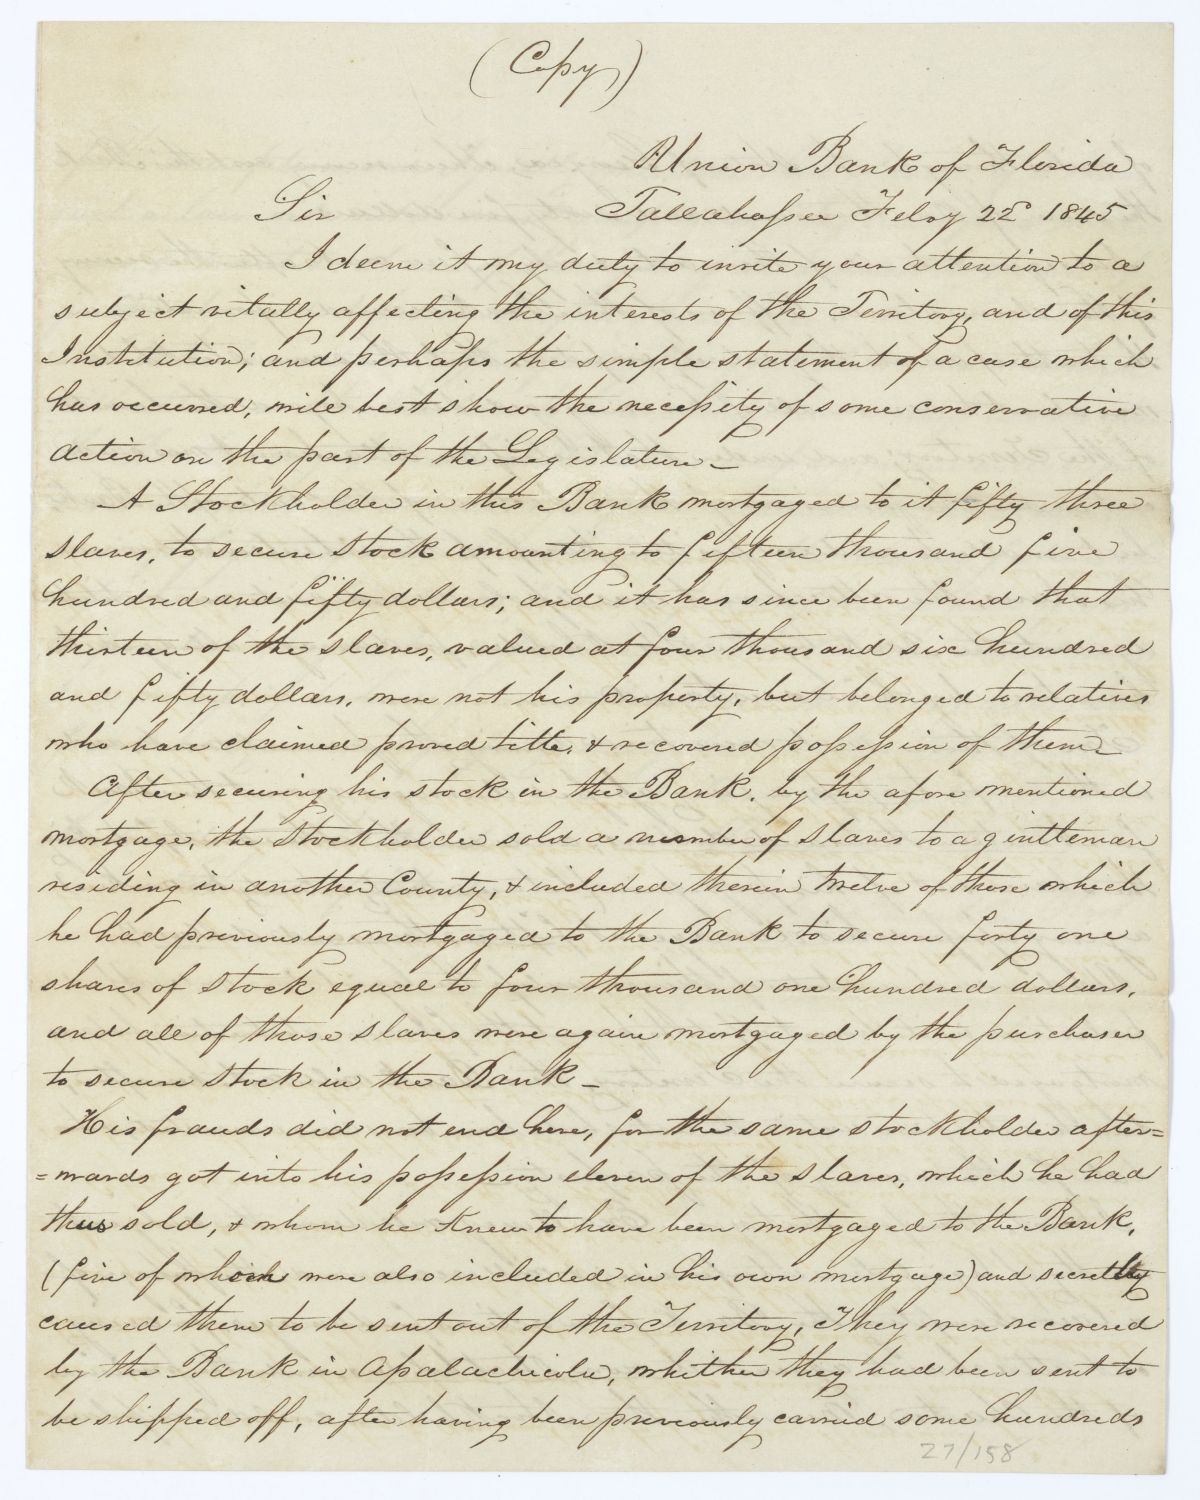 (Copy)
Union Bank of Florida
Sir Tallahassee Feby 22d 1845
I deem it my duty to invite your attention to a
subject vitally affecting the interests of the Territory, and of this
Institution; and perhaps the simple statement of a case which
has occurred, will best show the necessity of some conservative
action on the part of the Legislature_
A Stockholder in this Bank mortgaged to it fifty three
slaves, to secure stock amounting to fifteen thousand five
hundred and fifty dollars; and it has since been found that
thirteen of the slaves, valued at four thousand six hundred
and fifty dollars, were not his property, but belonged to relatives
who have claimed proved title, & recovered possession of them_
After securing his stock in the Bank, by the afore mentioned
mortgage, the Stockholder sold a number of slaves to a gentleman
residing in another County, & included therein twelve of those which
he had previously mortgaged to the Bank to secure forty one
shares of stock equal to four thousand one hundred dollars,
and all of those slaves were again mortgaged by the purchaser
to secure stock in the Bank_
His frauds did not end here, for the same stockholder after=
=wards got into his possession eleven of the slaves, which he had
thus sold, & whom he knew to have been mortgaged to the Bank,
(five of which were also included in his own mortgage) and secretly
caused them to be sent out of the Territory, They were recovered
by the Bank in Apalachicola, whither they had been sent to
be shipped off, after having been previously carried some hundreds
27/158